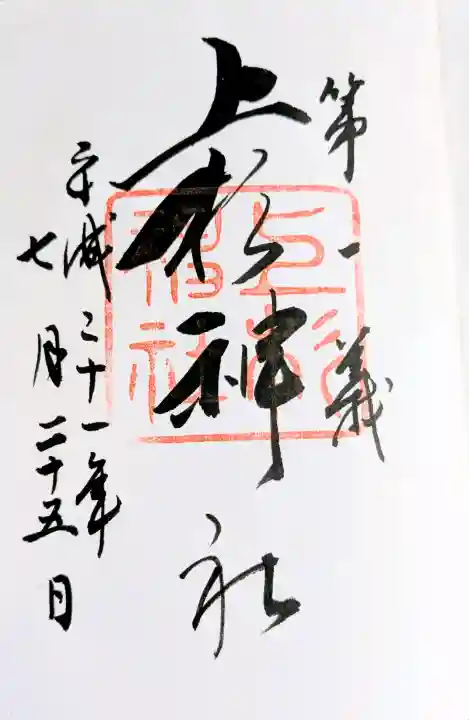 第一義
上杉神社
上杉
神社
平成二十一年
七月二十五日